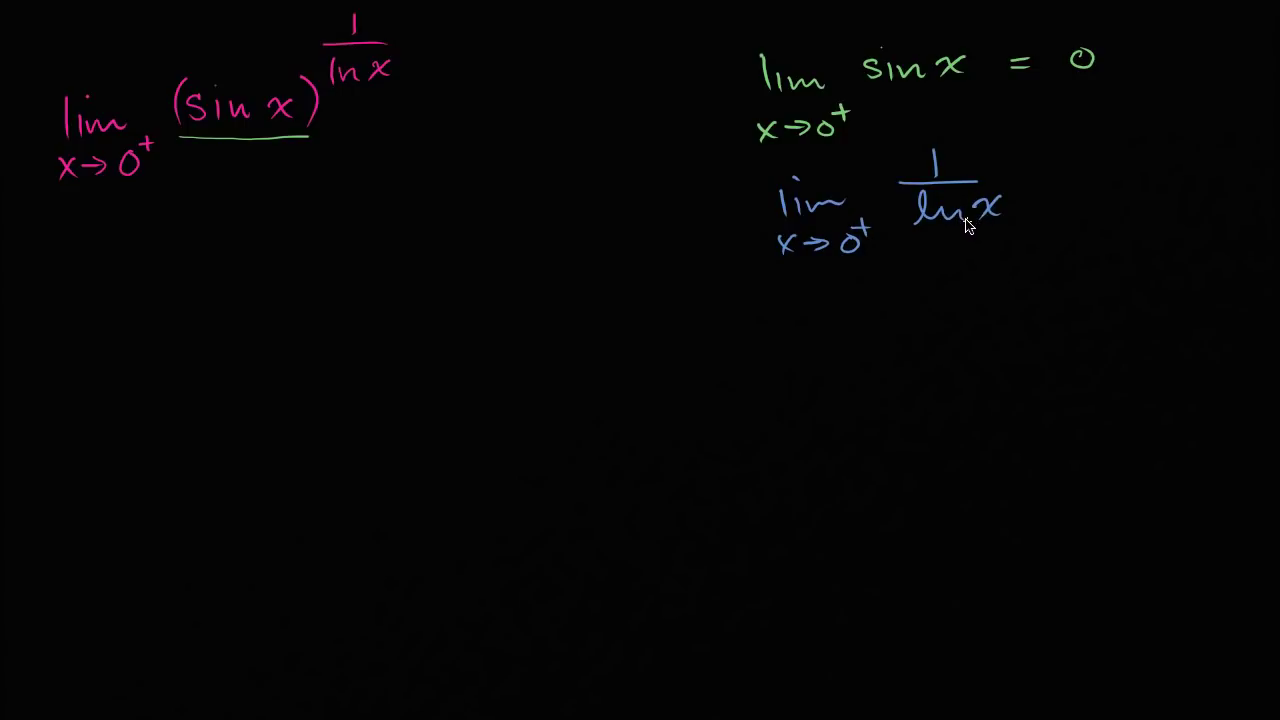 lim x→0⁺ (sin x)^(1/ln x)
lim x→0⁺ sin x = 0
lim x→0⁺ 1/ln x